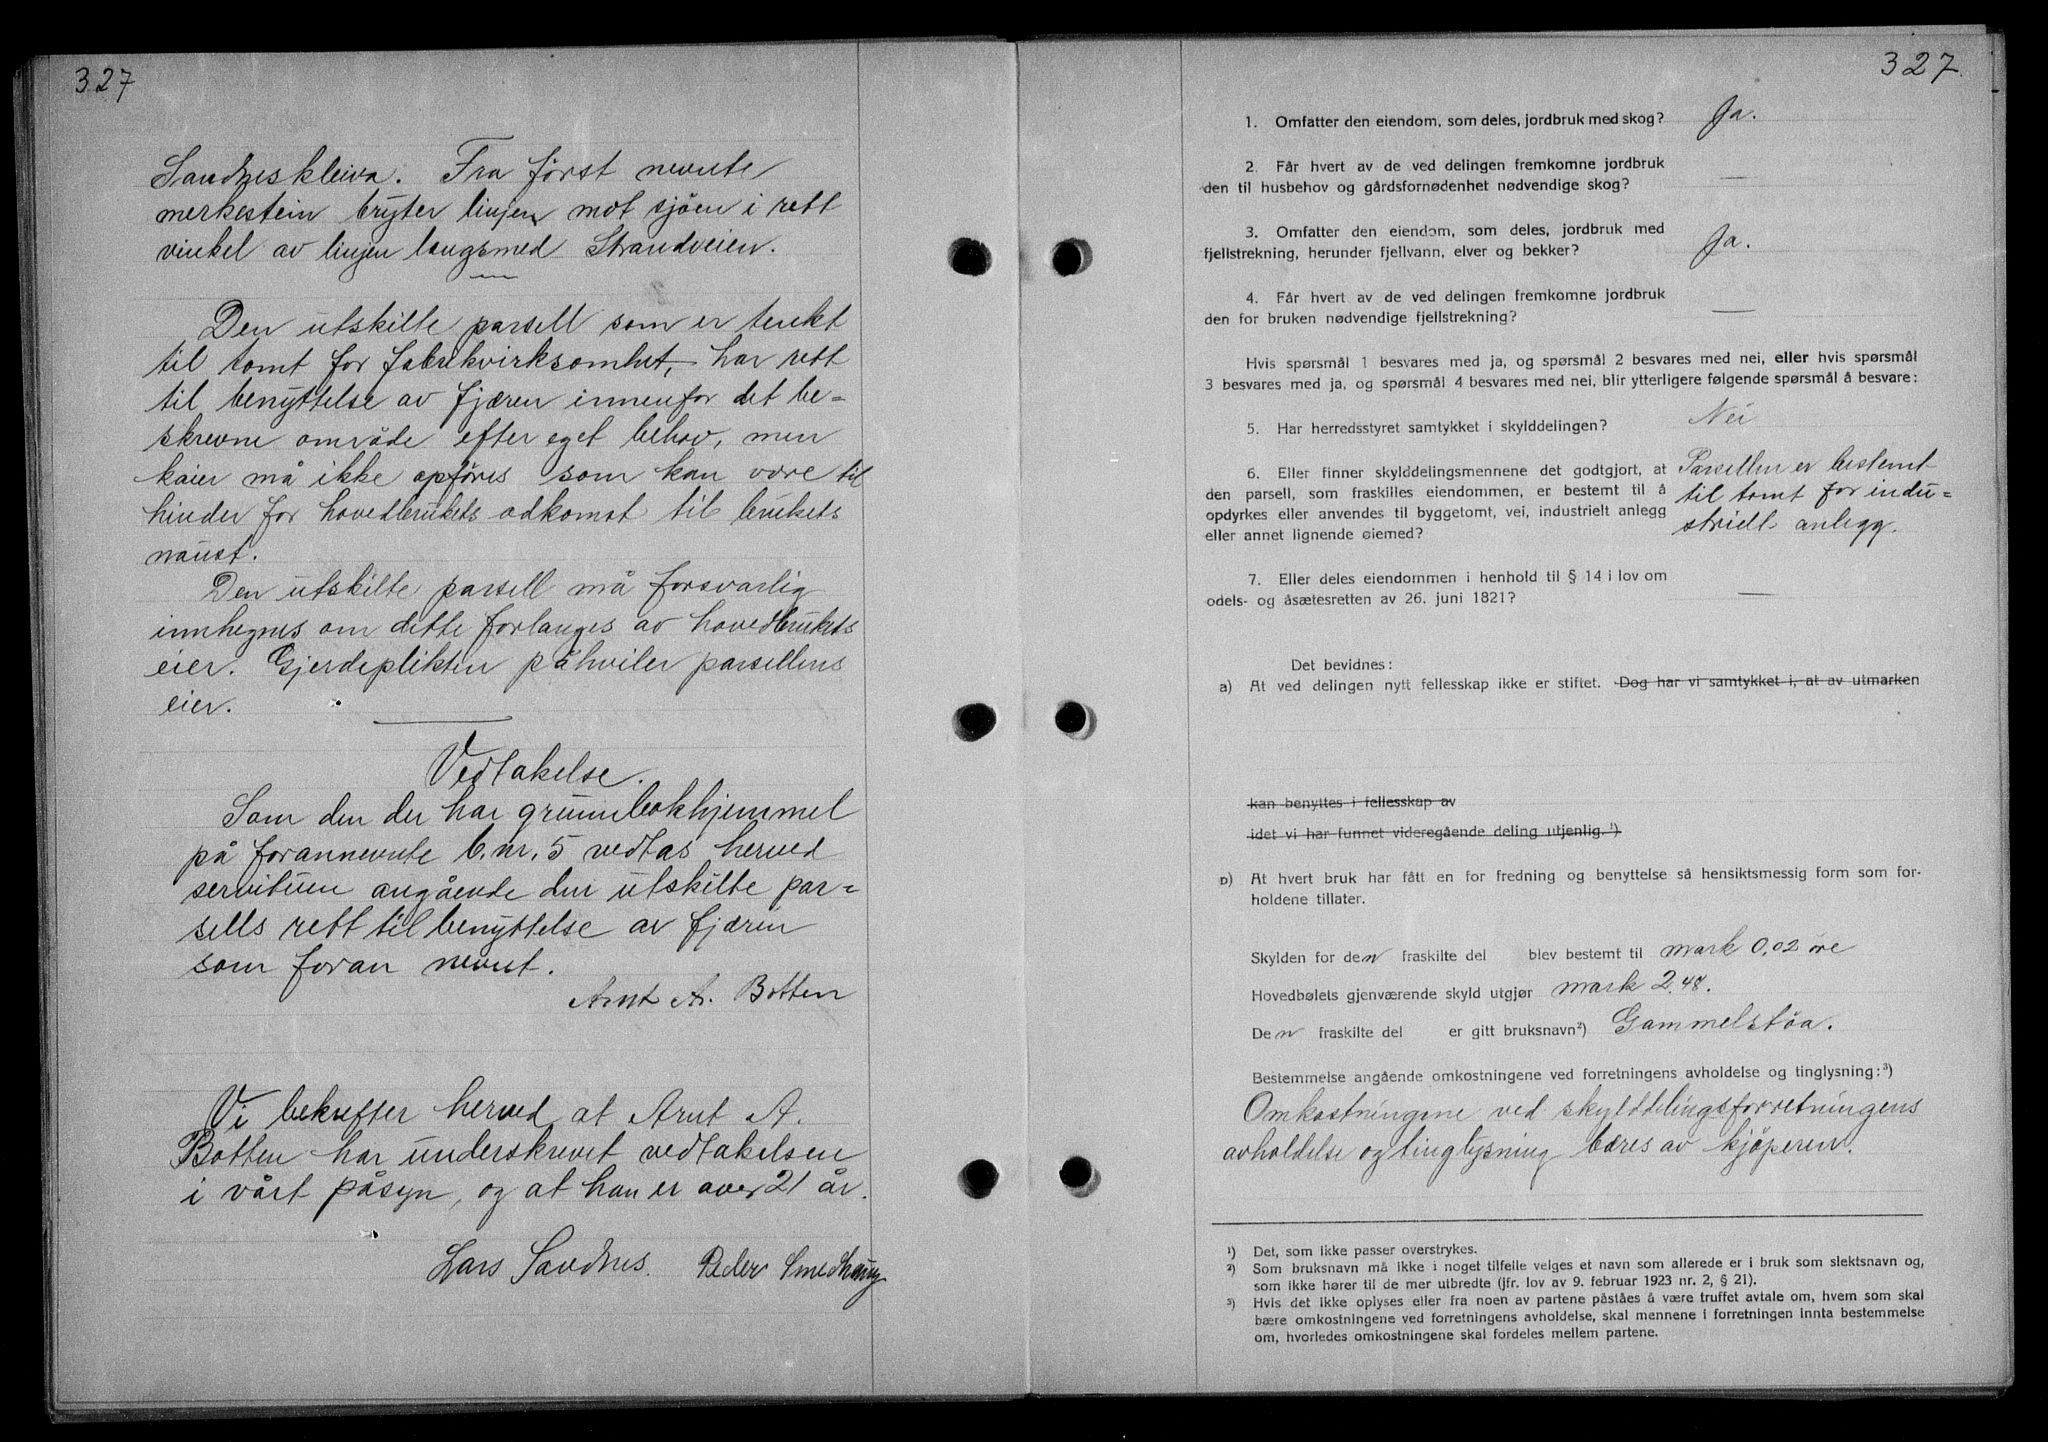 327
Sandneskleiva. Fra först nevnte
merkestein bryter linjen mot sjöen i rett
vinkel av linjen langsmed Strandveien.
Den utskilte parsell som er tenkt
til tomt for fabrikvirksomhet, har rett
til benyttelse av fjæren innenfor det be=
skrevne område efter eget behov, men
kaier må ikke opföres som kan være til
hinder for hovedbrukets adkomst til brukets
naust.
Den utskilte parsell må forsvarlig
innhegnes om dette forlanges av hovedbrukets
eier. Gjerdeplikten påhviler parsellens
eier.
Vedtakelse.
Som den der har grunnbokhjemmel
på forannevnte b.nr. 5 vedtas herved
servituen angående den utskilte par=
sells rett til benyttelse av fjæren
som foran nevnt.
Arnt A. Botten
Vi bekrefter herved at Arnt A.
Botten har underskrevet vedtakelsen
i vårt påsyn, og at han er over 21 år.
Lars Sandnes. Peder Smedhaug
327.
1. Omfatter den eiendom, som deles, jordbruk med skog? Ja.
2. Får hvert av de ved delingen fremkomne jordbruk
den til husbehov og gårdsfornødenhet nødvendige skog? —
3. Omfatter den eiendom, som deles, jordbruk med
fjellstrekning, herunder fjellvann, elver og bekker? Ja.
4. Får hvert av de ved delingen fremkomne jordbruk
den for bruken nødvendige fjellstrekning? —
Hvis spørsmål 1 besvares med ja, og spørsmål 2 besvares med nei, eller hvis spørsmål
3 besvares med ja, og spørsmål 4 besvares med nei, blir ytterligere følgende spørsmål å besvare:
5. Har herredsstyret samtykket i skylddelingen? Nei
6. Eller finner skylddelingsmennene det godtgjort, at
den parsell, som fraskilles eiendommen, er bestemt til å
opdyrkes eller anvendes til byggetomt, vei, industrielt anlegg
eller annet lignende øiemed?
Parsellen er bestemt
til tomt for indu=
strielt anlegg.
7. Eller deles eiendommen i henhold til § 14 i lov om
odels- og åsætesretten av 26. juni 1821? —
Det bevidnes:
a) At ved delingen nytt fellesskap ikke er stiftet. Dog har vi samtykket i, at av utmarken
kan benyttes i fellesskap av
idet vi har funnet videregående deling utjenlig.¹)
b) At hvert bruk har fått en for fredning og benyttelse så hensiktsmessig form som for-
holdene tillater.
Skylden for den fraskilte del blev bestemt til mark 0,02 öre
Hovedbølets gjenværende skyld utgjør mark 2.48.
Den fraskilte del er gitt bruksnavn²) Gammelstöa.
Bestemmelse angående omkostningene ved forretningens avholdelse og tinglysning:³)
Omkostningene ved skylddelingsforretningens
avholdelse og tinglysning bæres av kjöperen.
¹) Det, som ikke passer overstrykes.
²) Som bruksnavn må ikke i noget tilfelle velges et navn som allerede er i bruk som slektsnavn og,
som ikke hører til de mer utbredte (jfr. lov av 9. februar 1923 nr. 2, § 21).
³) Hvis det ikke oplyses eller fra noen av partene påståes å være truffet avtale om, hvem som skal
bære omkostningene ved forretningens avholdelse, skal mennene i forretningen innta bestemmelse
om, hvorledes omkostningene skal fordeles mellem partene.